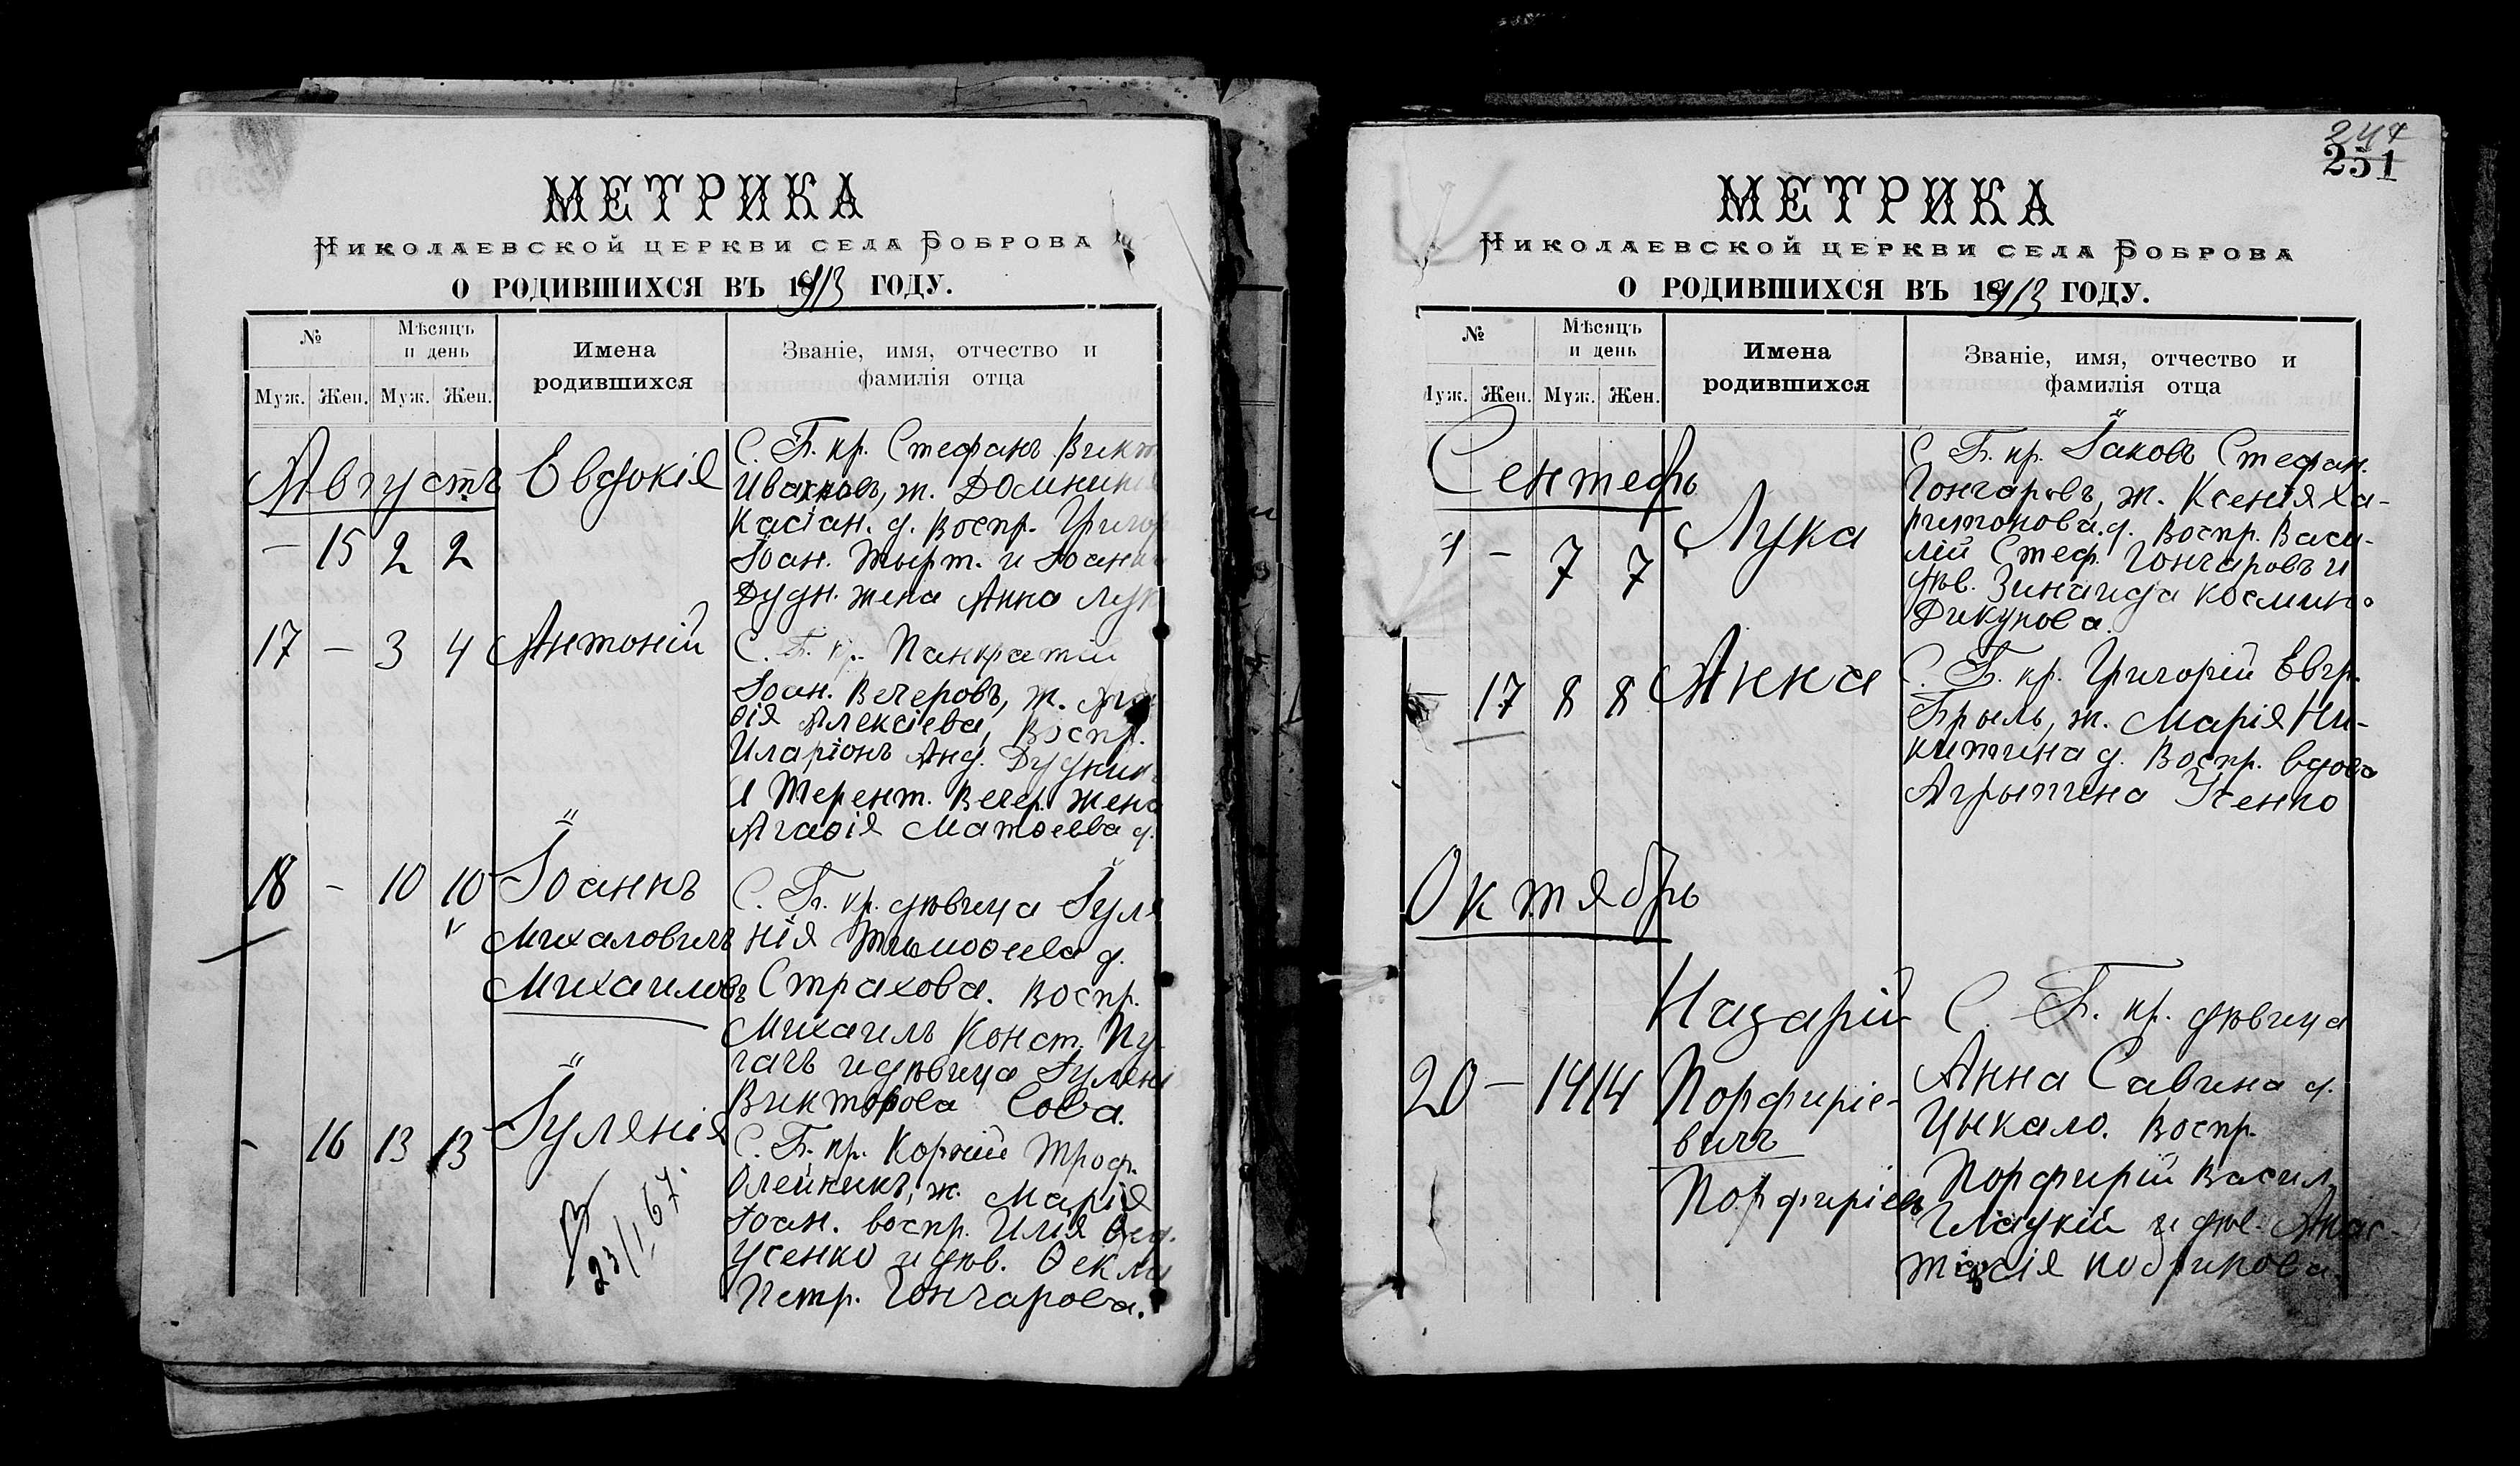 МЕТРИКА
Николаевской церкви села Боброва
О РОДИВШИХСЯ ВЪ 1913 ГОДУ.
№
Мѣсяцъ и день
Имена родившихся
Званіе, имя, отчество и фамилія отца
Муж. Жен. Муж. Жен.
Августъ
– 15 2 2
Евдокія
С. Б. кр. Стефанъ Викт
Иваховъ, ж. Домники
Касіан. д. Воспр. Григор
Іоан. Тырт. и Іоанн
Дудн. жена Анна Лук
17 – 3 4
Антоній
С. Б. кр. Панкратій
Іоан. Вечеровъ, ж. Ага
ѳія Алексіева, Воспр.
Иларіонъ Анд. Дудкин
и Терент. Вечер. жена
Агаѳія Матѳеева д.
18 – 10 10
Іоаннъ
Михаловичъ
Михаиловъ
С. Б. кр. дѣвица Іуля
нія Тимоѳеева д.
Страхова. Воспр.
Михаилъ Конст. Пу-
гачъ и дѣвица Іулені
Викторова Сова.
- 16 13 13
Іулянія
23/I, 67.
С. Б. кр. Корній Троф.
Олейникъ, ж. Марія
Іоан. воспр. Илія Ѳед.
Усенко и дѣв. Ѳекла
Петр. Гончарова.
244
251
МЕТРИКА
Николаевской церкви села Боброва
О РОДИВШИХСЯ ВЪ 1913 ГОДУ.
№
Мѣсяцъ и день
Имена родившихся
Званіе, имя, отчество и фамилія отца
Муж. Жен. Муж. Жен.
Сентябрь
– 7 7
Лука
С. Б. кр. Іаковъ Стефан.
Гончаровъ, ж. Ксенія Ха-
ритонова д. Воспр. Васи-
лій Стеф. Гончаровъ и
дѣв. Зинаида Космин.
Дикунова.
– 17 8 8
Анна
С. Б. кр. Григорій Евгр.
Брыль, ж. Марія Ни-
китина д. Воспр. вдова
Агрыпина Усенко
Октябрь
20 – 14 14
Назарій
Порфиріе-
вичъ
Порфиріевъ
С. Б. кр. дѣвица
Анна Савина д.
Цыкало. Воспр.
Порфирій Васил.
Гладкій и дѣв. Анас-
тасія